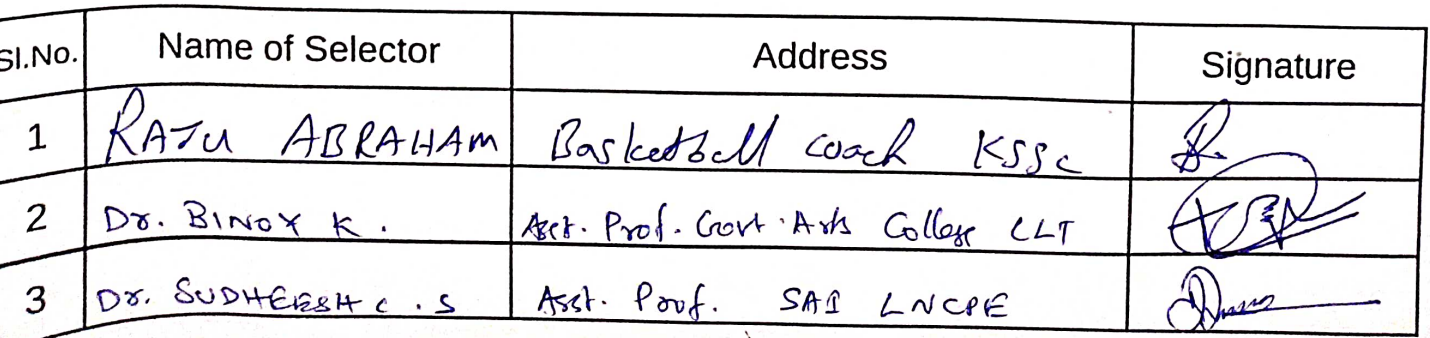 Sl.No. Name of Selector Address Signature
1 RAJU ABRAHAM Basketball coach KSSC
2 Dr. BINOY K. Asst. Prof. Govt. Arts College CLT
3 Dr. SUDHEESH C.S Asst. Prof. SAI LNCPE